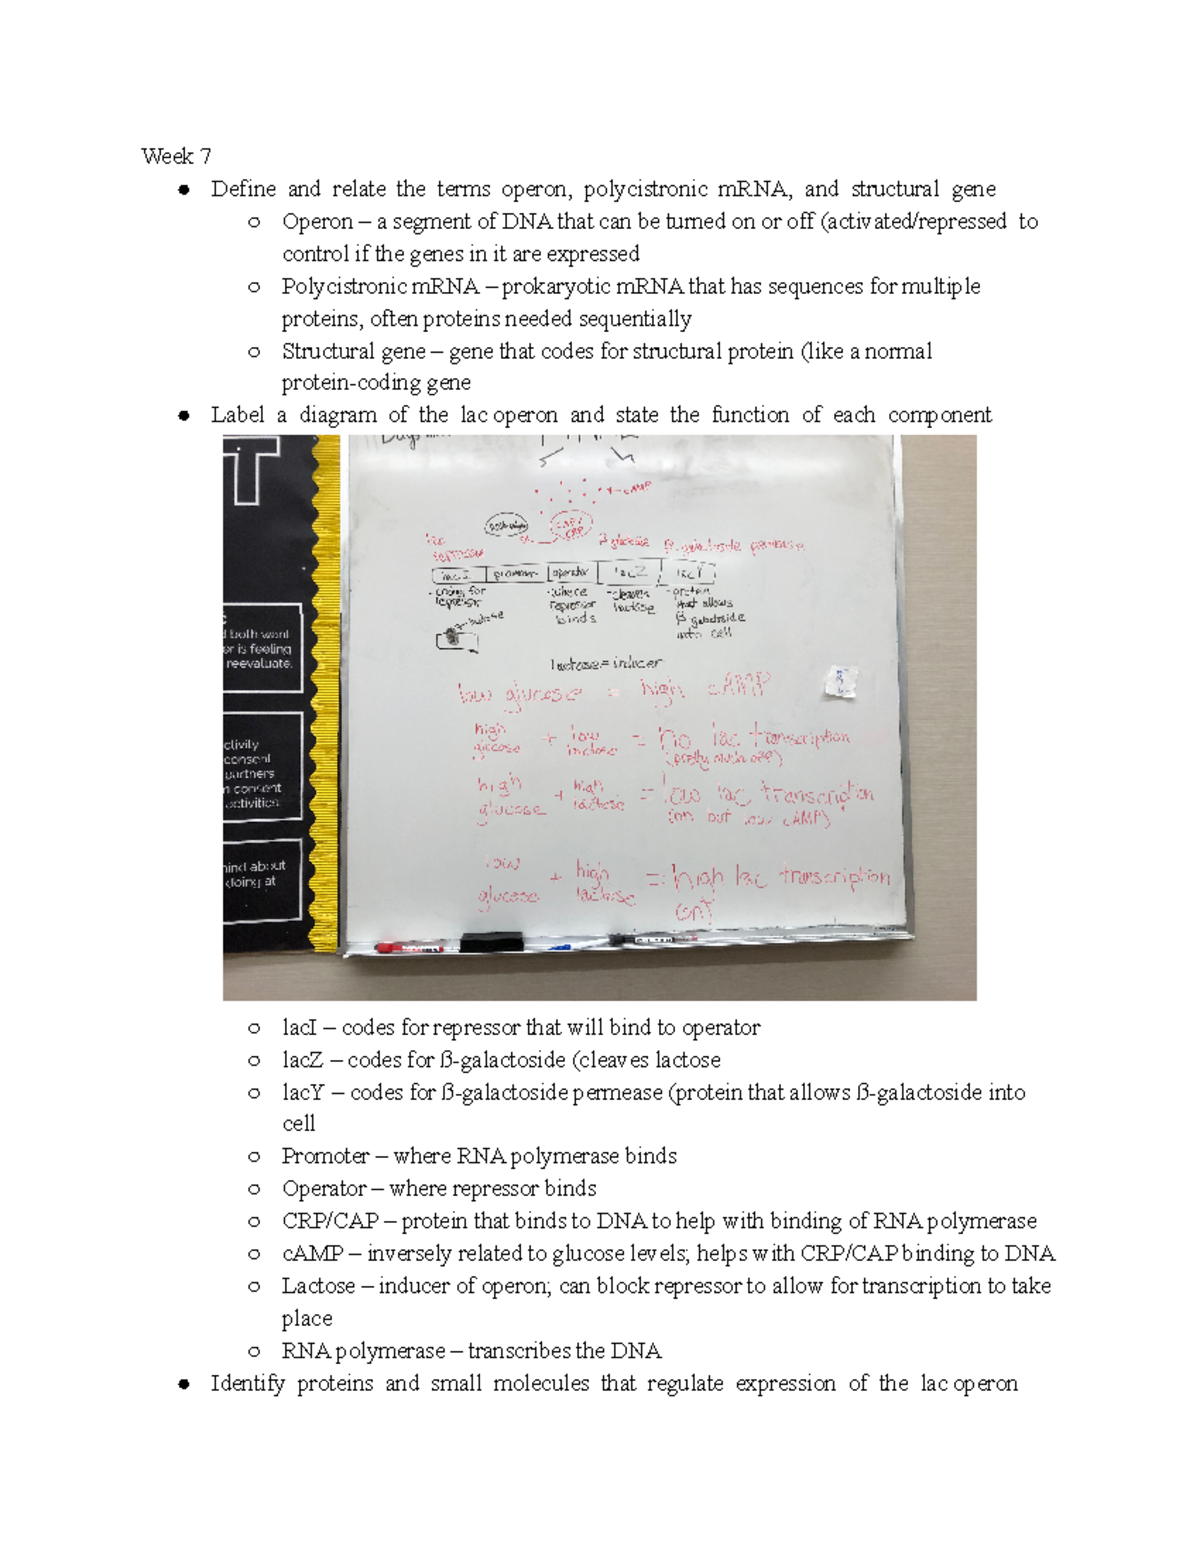 Week 7
● Define and relate the terms operon, polycistronic mRNA, and structural gene
○ Operon – a segment of DNA that can be turned on or off (activated/repressed to
control if the genes in it are expressed
○ Polycistronic mRNA – prokaryotic mRNA that has sequences for multiple
proteins, often proteins needed sequentially
○ Structural gene – gene that codes for structural protein (like a normal
protein-coding gene
● Label a diagram of the lac operon and state the function of each component
T
both want
or is feeling
reevaluate.
ctivity
consent
partners
n consent
activities
mind about
doing at
cAMP
CAP/
CRP
lac
repressor
β galactoside permease
promoter
operator
lacZ
lacY
- coding for
repressor
- where
repressor
binds
- cleaves
lactose
- protein
that allows
β galactoside
into cell
lactose
lactose = inducer
low glucose = high cAMP
high glucose + low lactose = no lac transcription
(pretty much off)
high glucose + high lactose = low lac transcription
(on but low cAMP)
low glucose + high lactose = high lac transcription
○ lacI – codes for repressor that will bind to operator
○ lacZ – codes for ß-galactoside (cleaves lactose
○ lacY – codes for ß-galactoside permease (protein that allows ß-galactoside into
cell
○ Promoter – where RNA polymerase binds
○ Operator – where repressor binds
○ CRP/CAP – protein that binds to DNA to help with binding of RNA polymerase
○ cAMP – inversely related to glucose levels; helps with CRP/CAP binding to DNA
○ Lactose – inducer of operon; can block repressor to allow for transcription to take
place
○ RNA polymerase – transcribes the DNA
● Identify proteins and small molecules that regulate expression of the lac operon